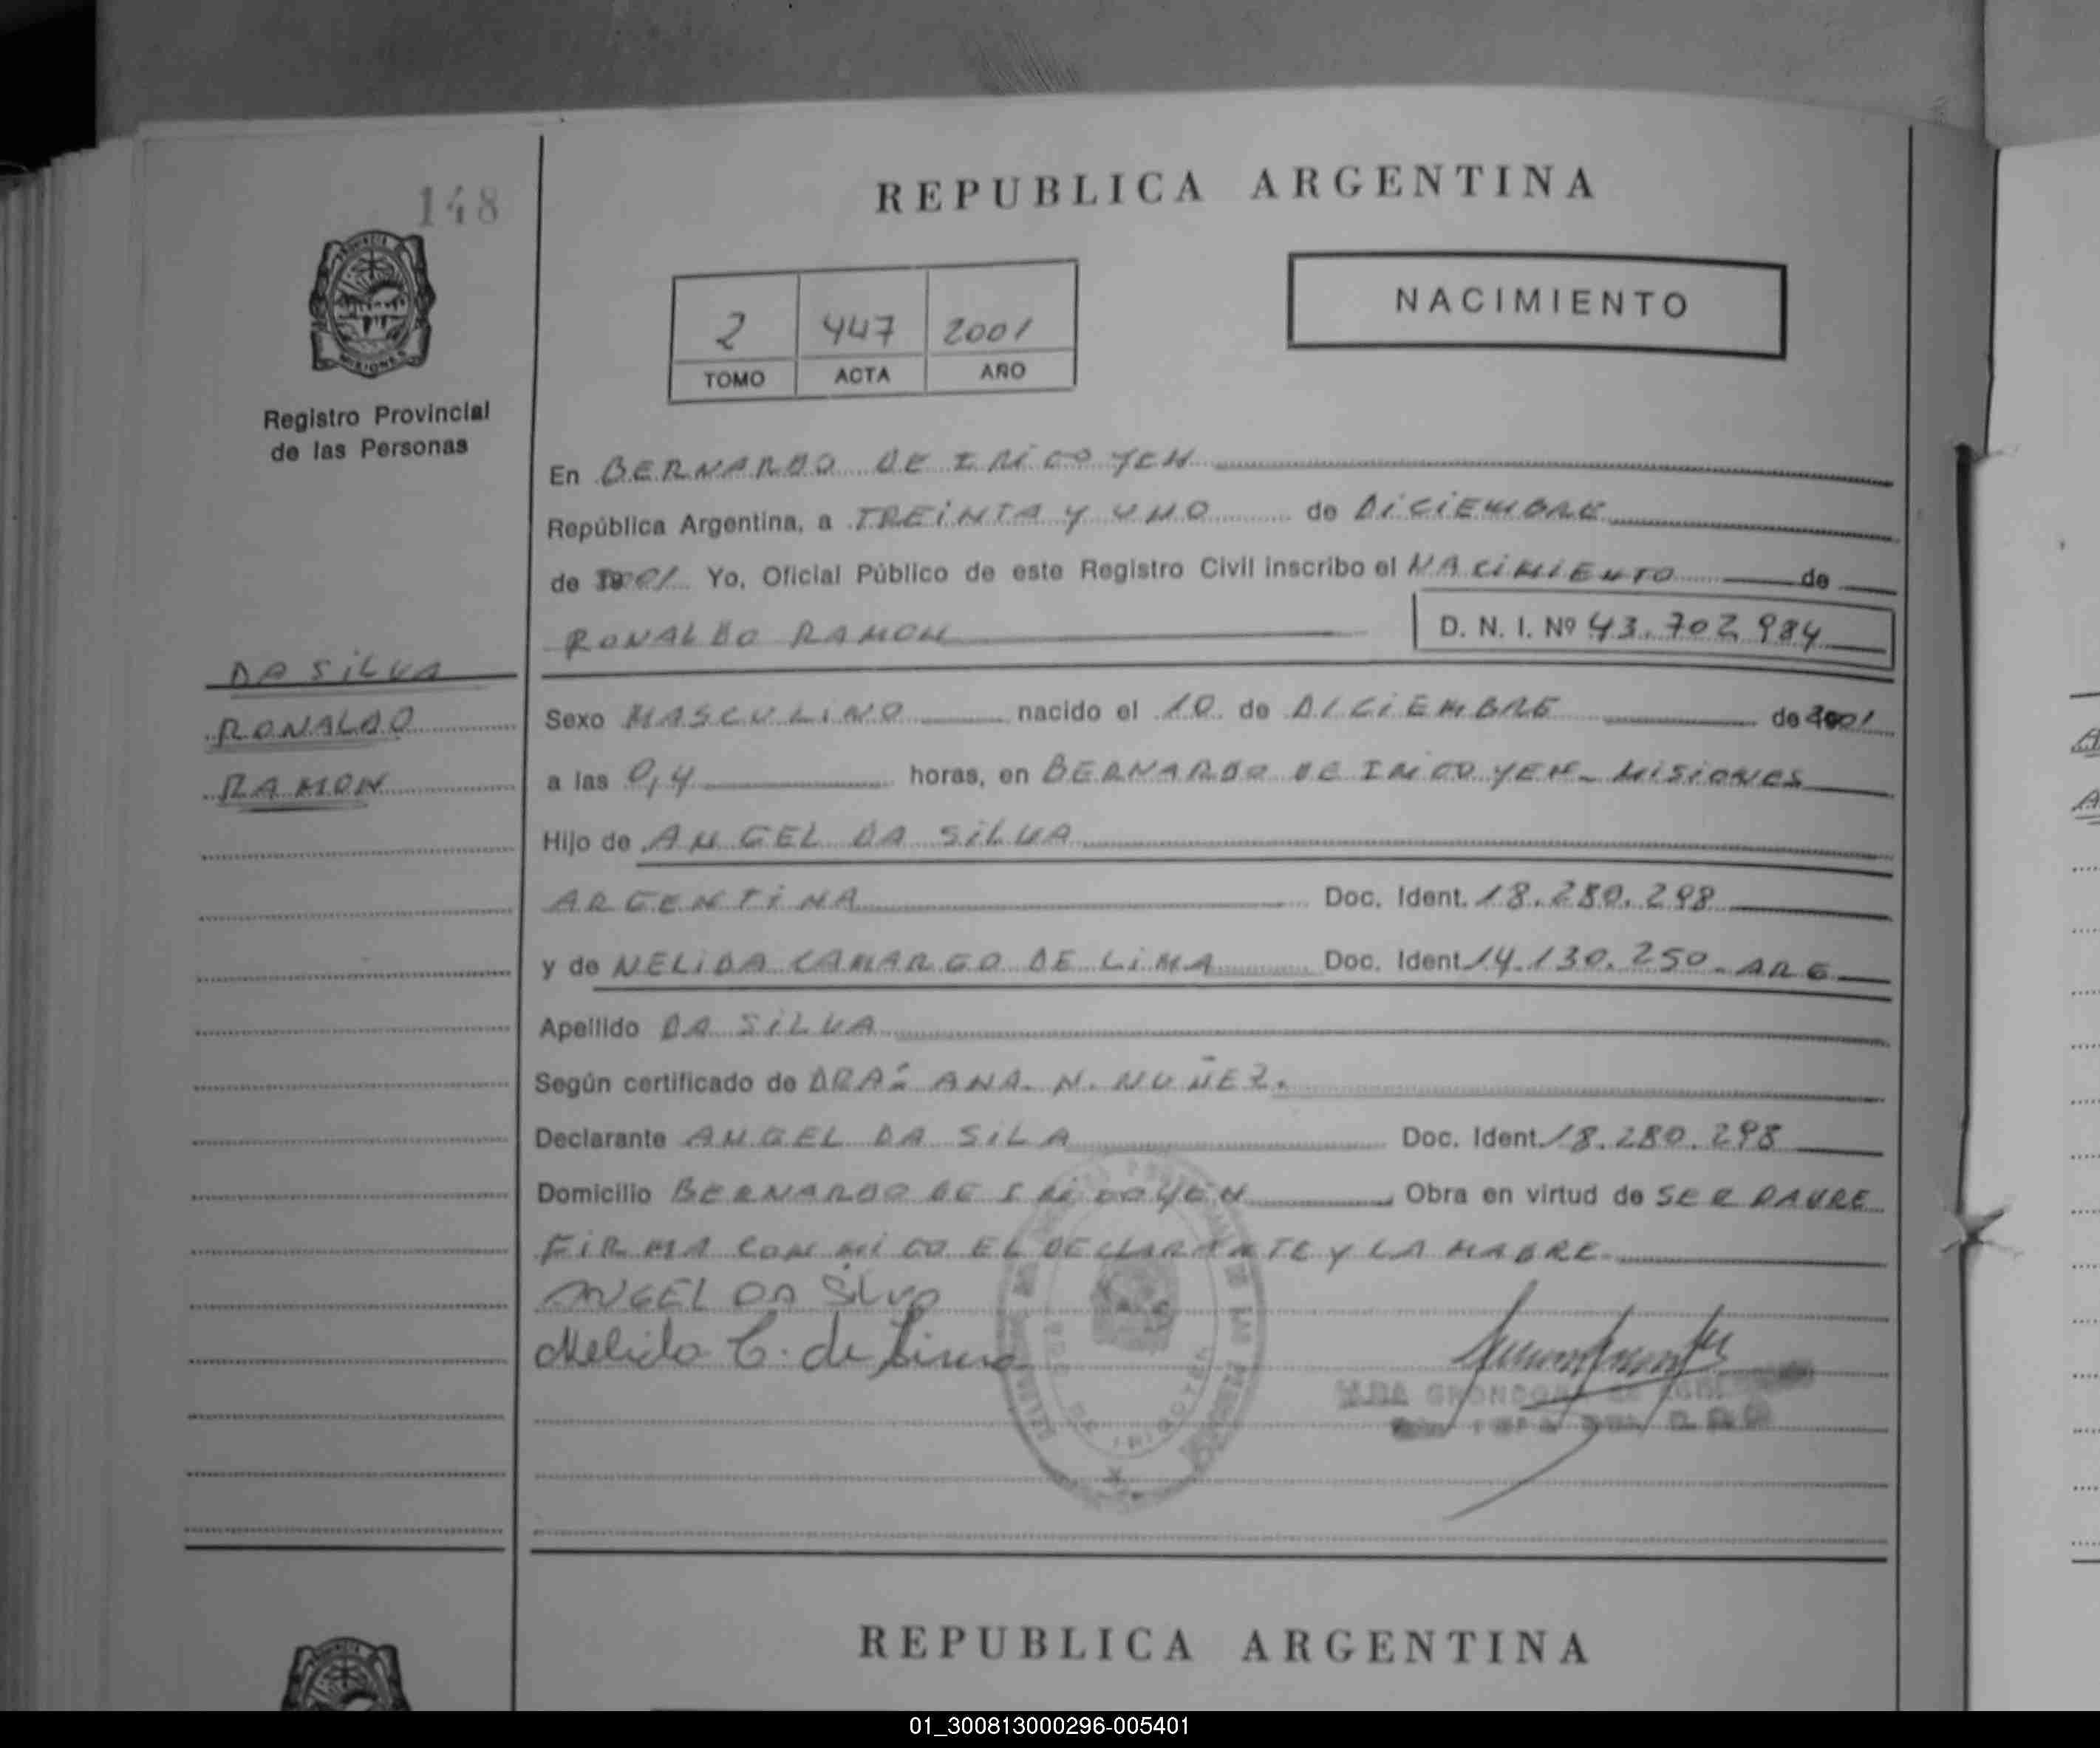 148
REPUBLICA ARGENTINA
NACIMIENTO
2 447 2001
TOMO ACTA AÑO
Registro Provincial
de las Personas
En BERNARDO DE IRIGOYEN
República Argentina, a TREINTA Y UNO de DICIEMBRE
de 2001 Yo, Oficial Público de este Registro Civil inscribo el NACIMIENTO de
RONALDO RAMON D. N. I. Nº 43.702.984
DA SILVA
RONALDO
RAMON
Sexo MASCULINO nacido el 10 de DICIEMBRE de 2001
a las 0,4 horas, en BERNARDO DE IRIGOYEN - MISIONES
Hijo de ANGEL DA SILVA
ARGENTINA Doc. Ident. 18.280.298
y de NELIDA CAMARGO DE LIMA Doc. Ident. 14.130.250 - ARG
Apellido DA SILVA
Según certificado de DRA: ANA. N. NUÑEZ.
Declarante ANGEL DA SILA Doc. Ident. 18.280.298
Domicilio BERNARDO DE IRIGOYEN Obra en virtud de SER PADRE
FIRMA CONMIGO EL DECLARANTE Y LA MADRE
ANGEL DA SILVA
Nelida C. de Lima
REPUBLICA ARGENTINA
01_300813000296-005401